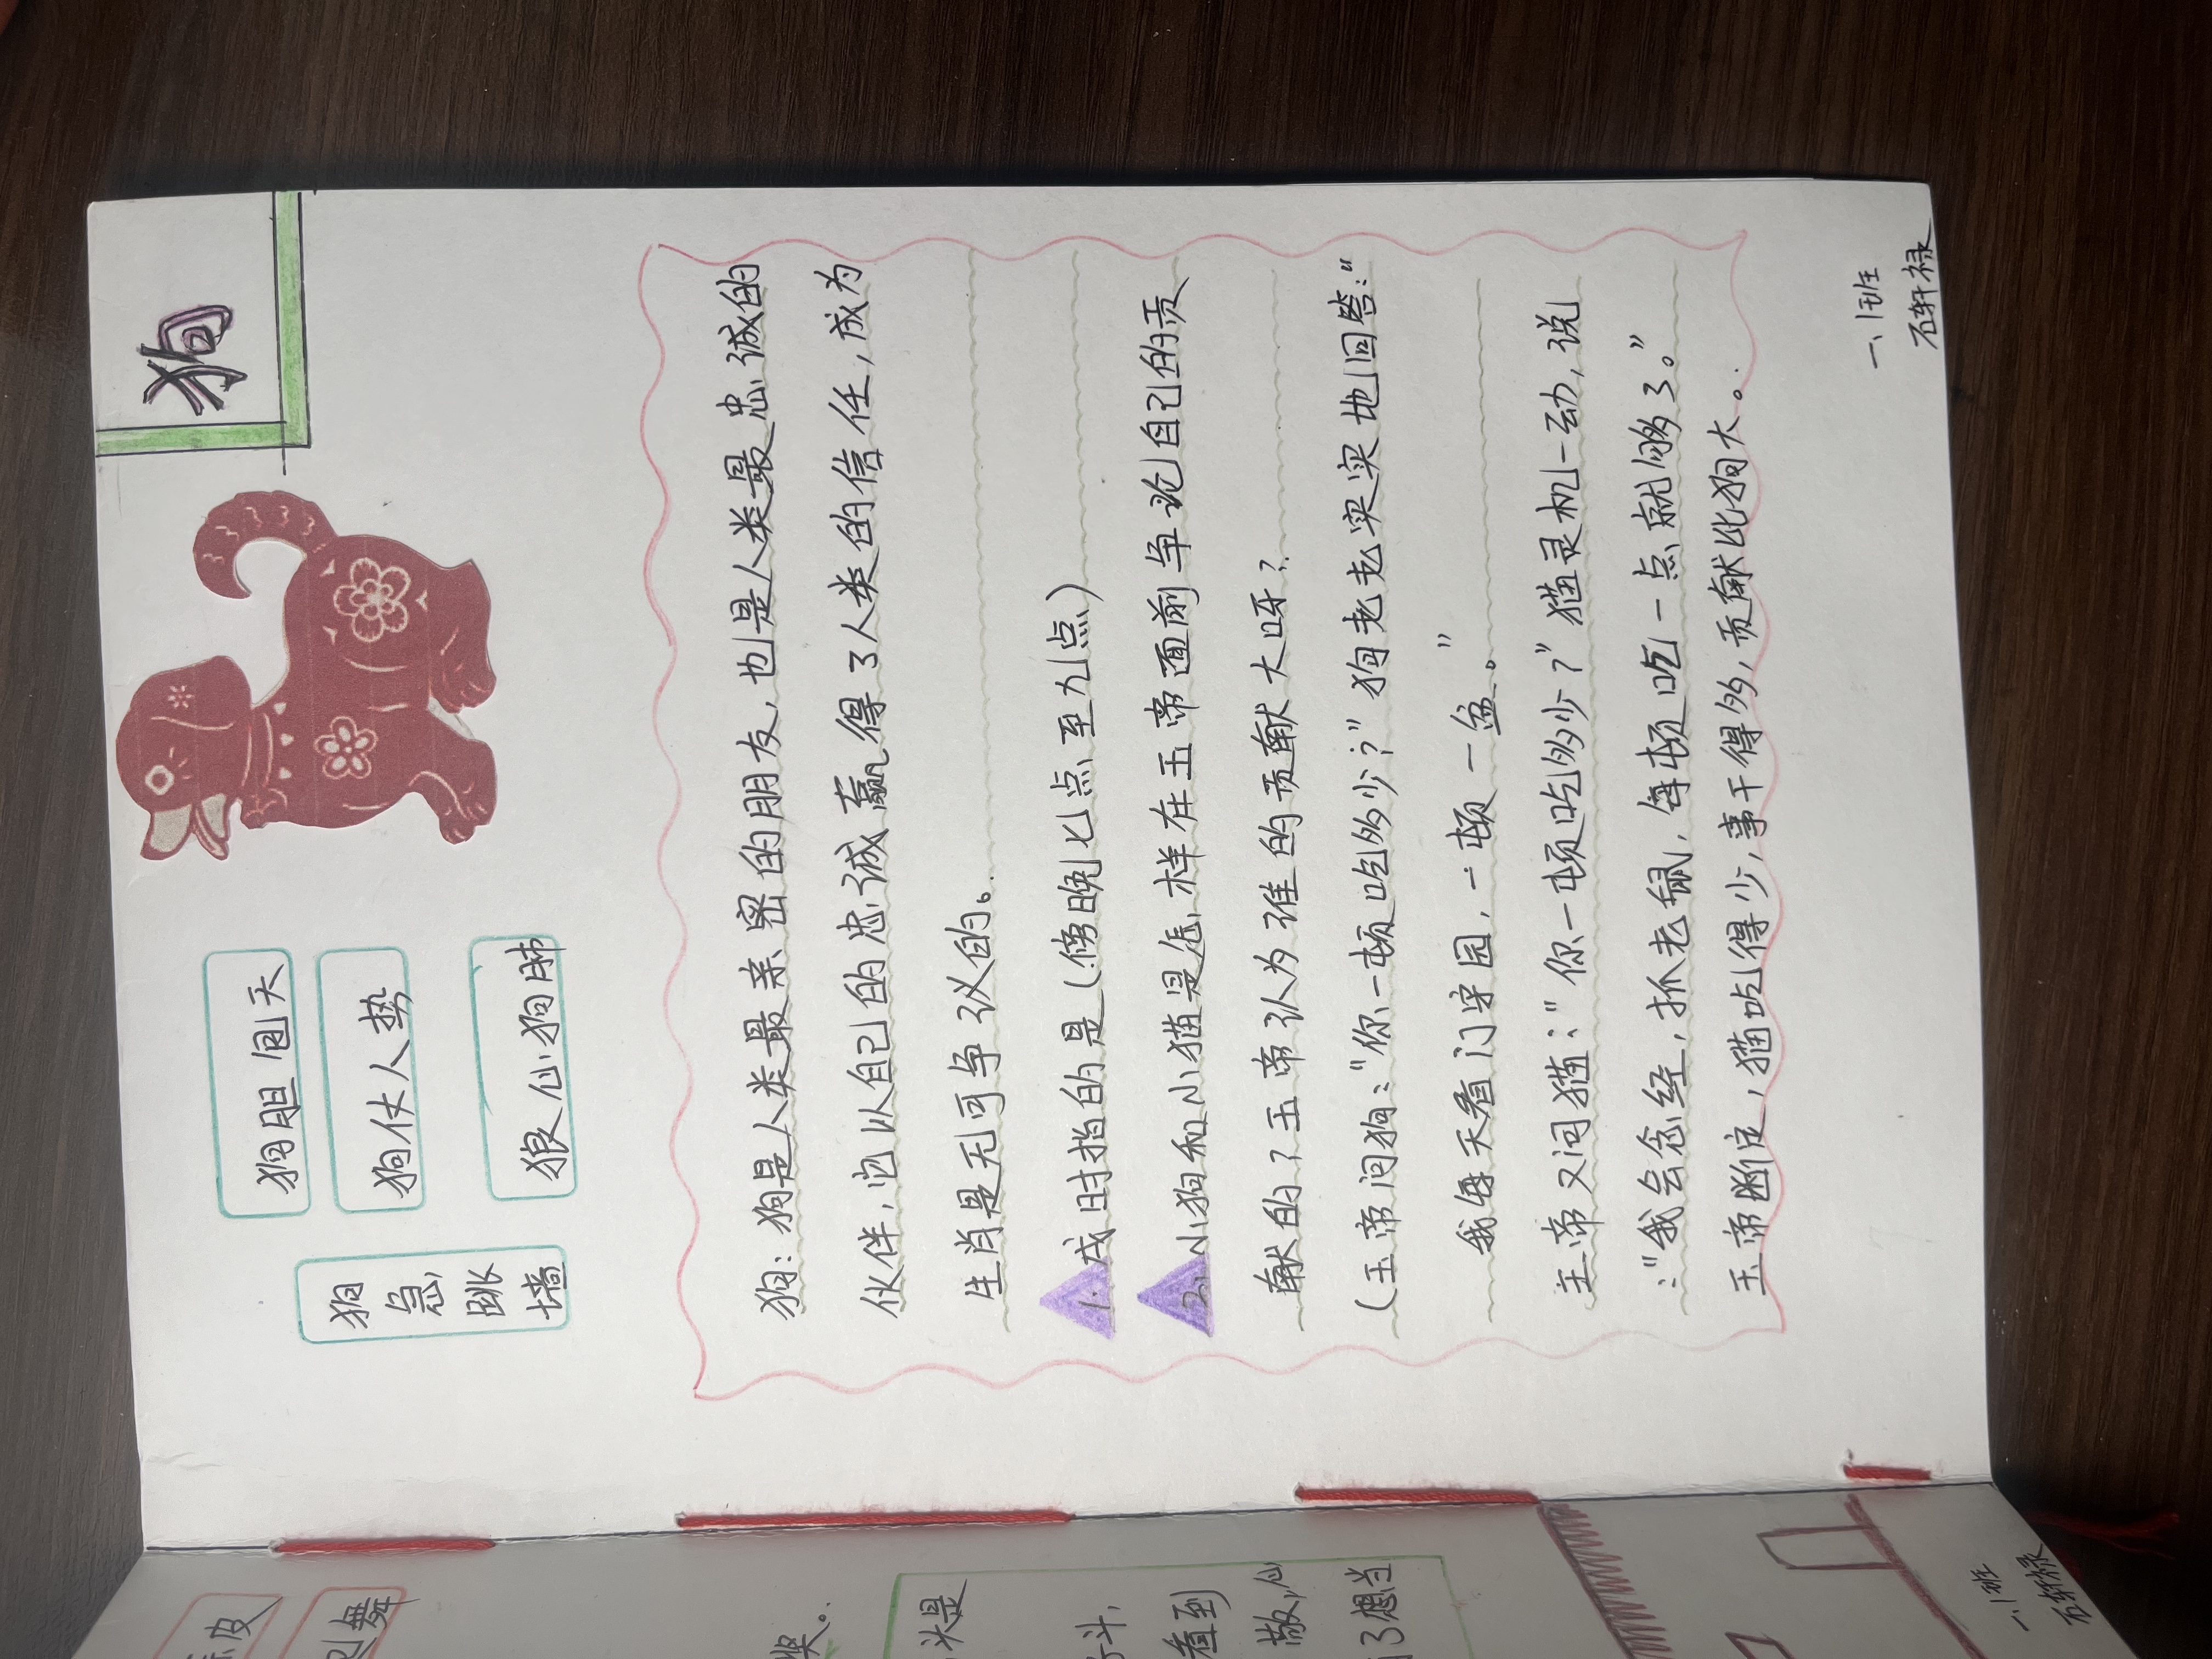 狗
狗急跳墙
狗胆包天
狗仗人势
狼心狗肺
狗：狗是人类最亲密的朋友，也是人类最忠诚的
伙伴，它以自己的忠诚赢得了人类的信任，成为
生肖是无可争议的。
1. 戌时指的是（傍晚七点至九点）
2. 小狗和小猫是怎样在玉帝面前争论自己的贡
献的？玉帝认为谁的贡献大呀？
（玉帝问狗："你一顿吃多少？"狗老老实实地回答："
我每天看门守园，一顿一盆。"
玉帝又问猫："你一顿吃多少？"猫灵机一动，说
："我会念经，抓老鼠，每顿吃一点就够了。"
玉帝断定，猫吃得少，事干得多，贡献比狗大。
一、1班
石轩禄
皮
舞
奖。
头是
斗，
看到
敲心
了想当
一、1班
石轩禄